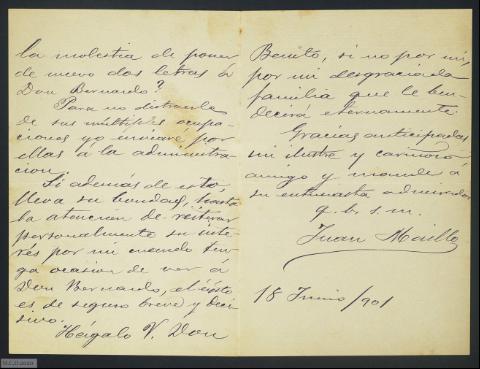 la molestia de poner
de nuevo dos letras á
Don Bernardo?
Para no distraerle
de sus múltiples ocupa-
ciones yo enviaré por
ellas á la administra-
cion.
Si además de esto,
lleva su bondad, hasta
la atencion de reiterar
personalmente su inte-
rés por mi cuando ten-
ga ocasion de ver á
Don Bernardo, el éxito
es de seguro breve y deci-
sivo.
Hágalo V. Don
Benito, si no por mi,
por mi desgraciada
familia que le ben-
decirá eternamente.
Gracias anticipadas
mi ilustre y cariñoso
amigo y mande á
su entusiasta admirador
q. b. s. m.
Juan Maillo
18 Junio/901